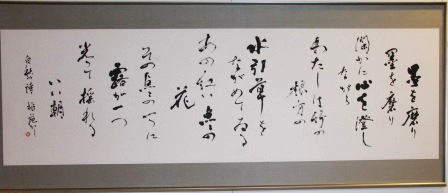 墨を磨り
墨を磨り
閑かに心を澄し
ながら
わたしは竹の
根方の
水引草を
ながめてゐる
あの紅い点々の
花
その点々の一つに
露が一つ
光つて揺れる
いい朝
白秋詩